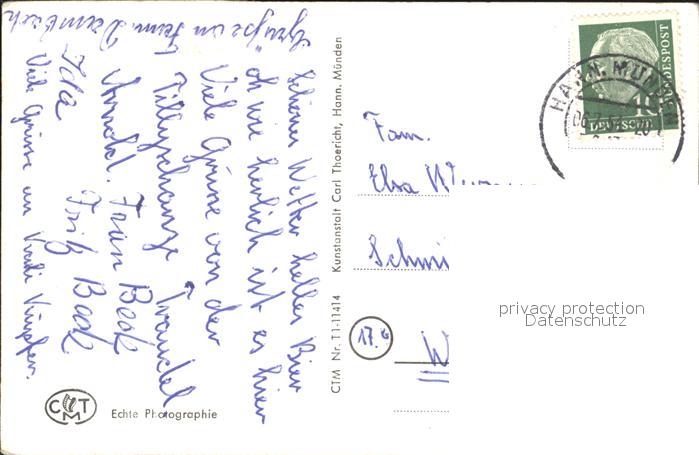 Schönes Wetter helles Bier
oh wie herlich ist es hier
Viele Grüße von der
Tillyschanze Traudel
Arnold. Frau Beck
Fritz Beck
Ida
Viele Grüsse an
Grüße an Fam.
CTM Nr. T1-11414 Kunstanstalt Carl Thoericht, Hann. Münden
Fam.
Elsa
17.6
W
HANN. MÜNDEN
DEUTSCHE BUNDESPOST
10
privacy protection
Datenschutz
CTM
Echte Photographie